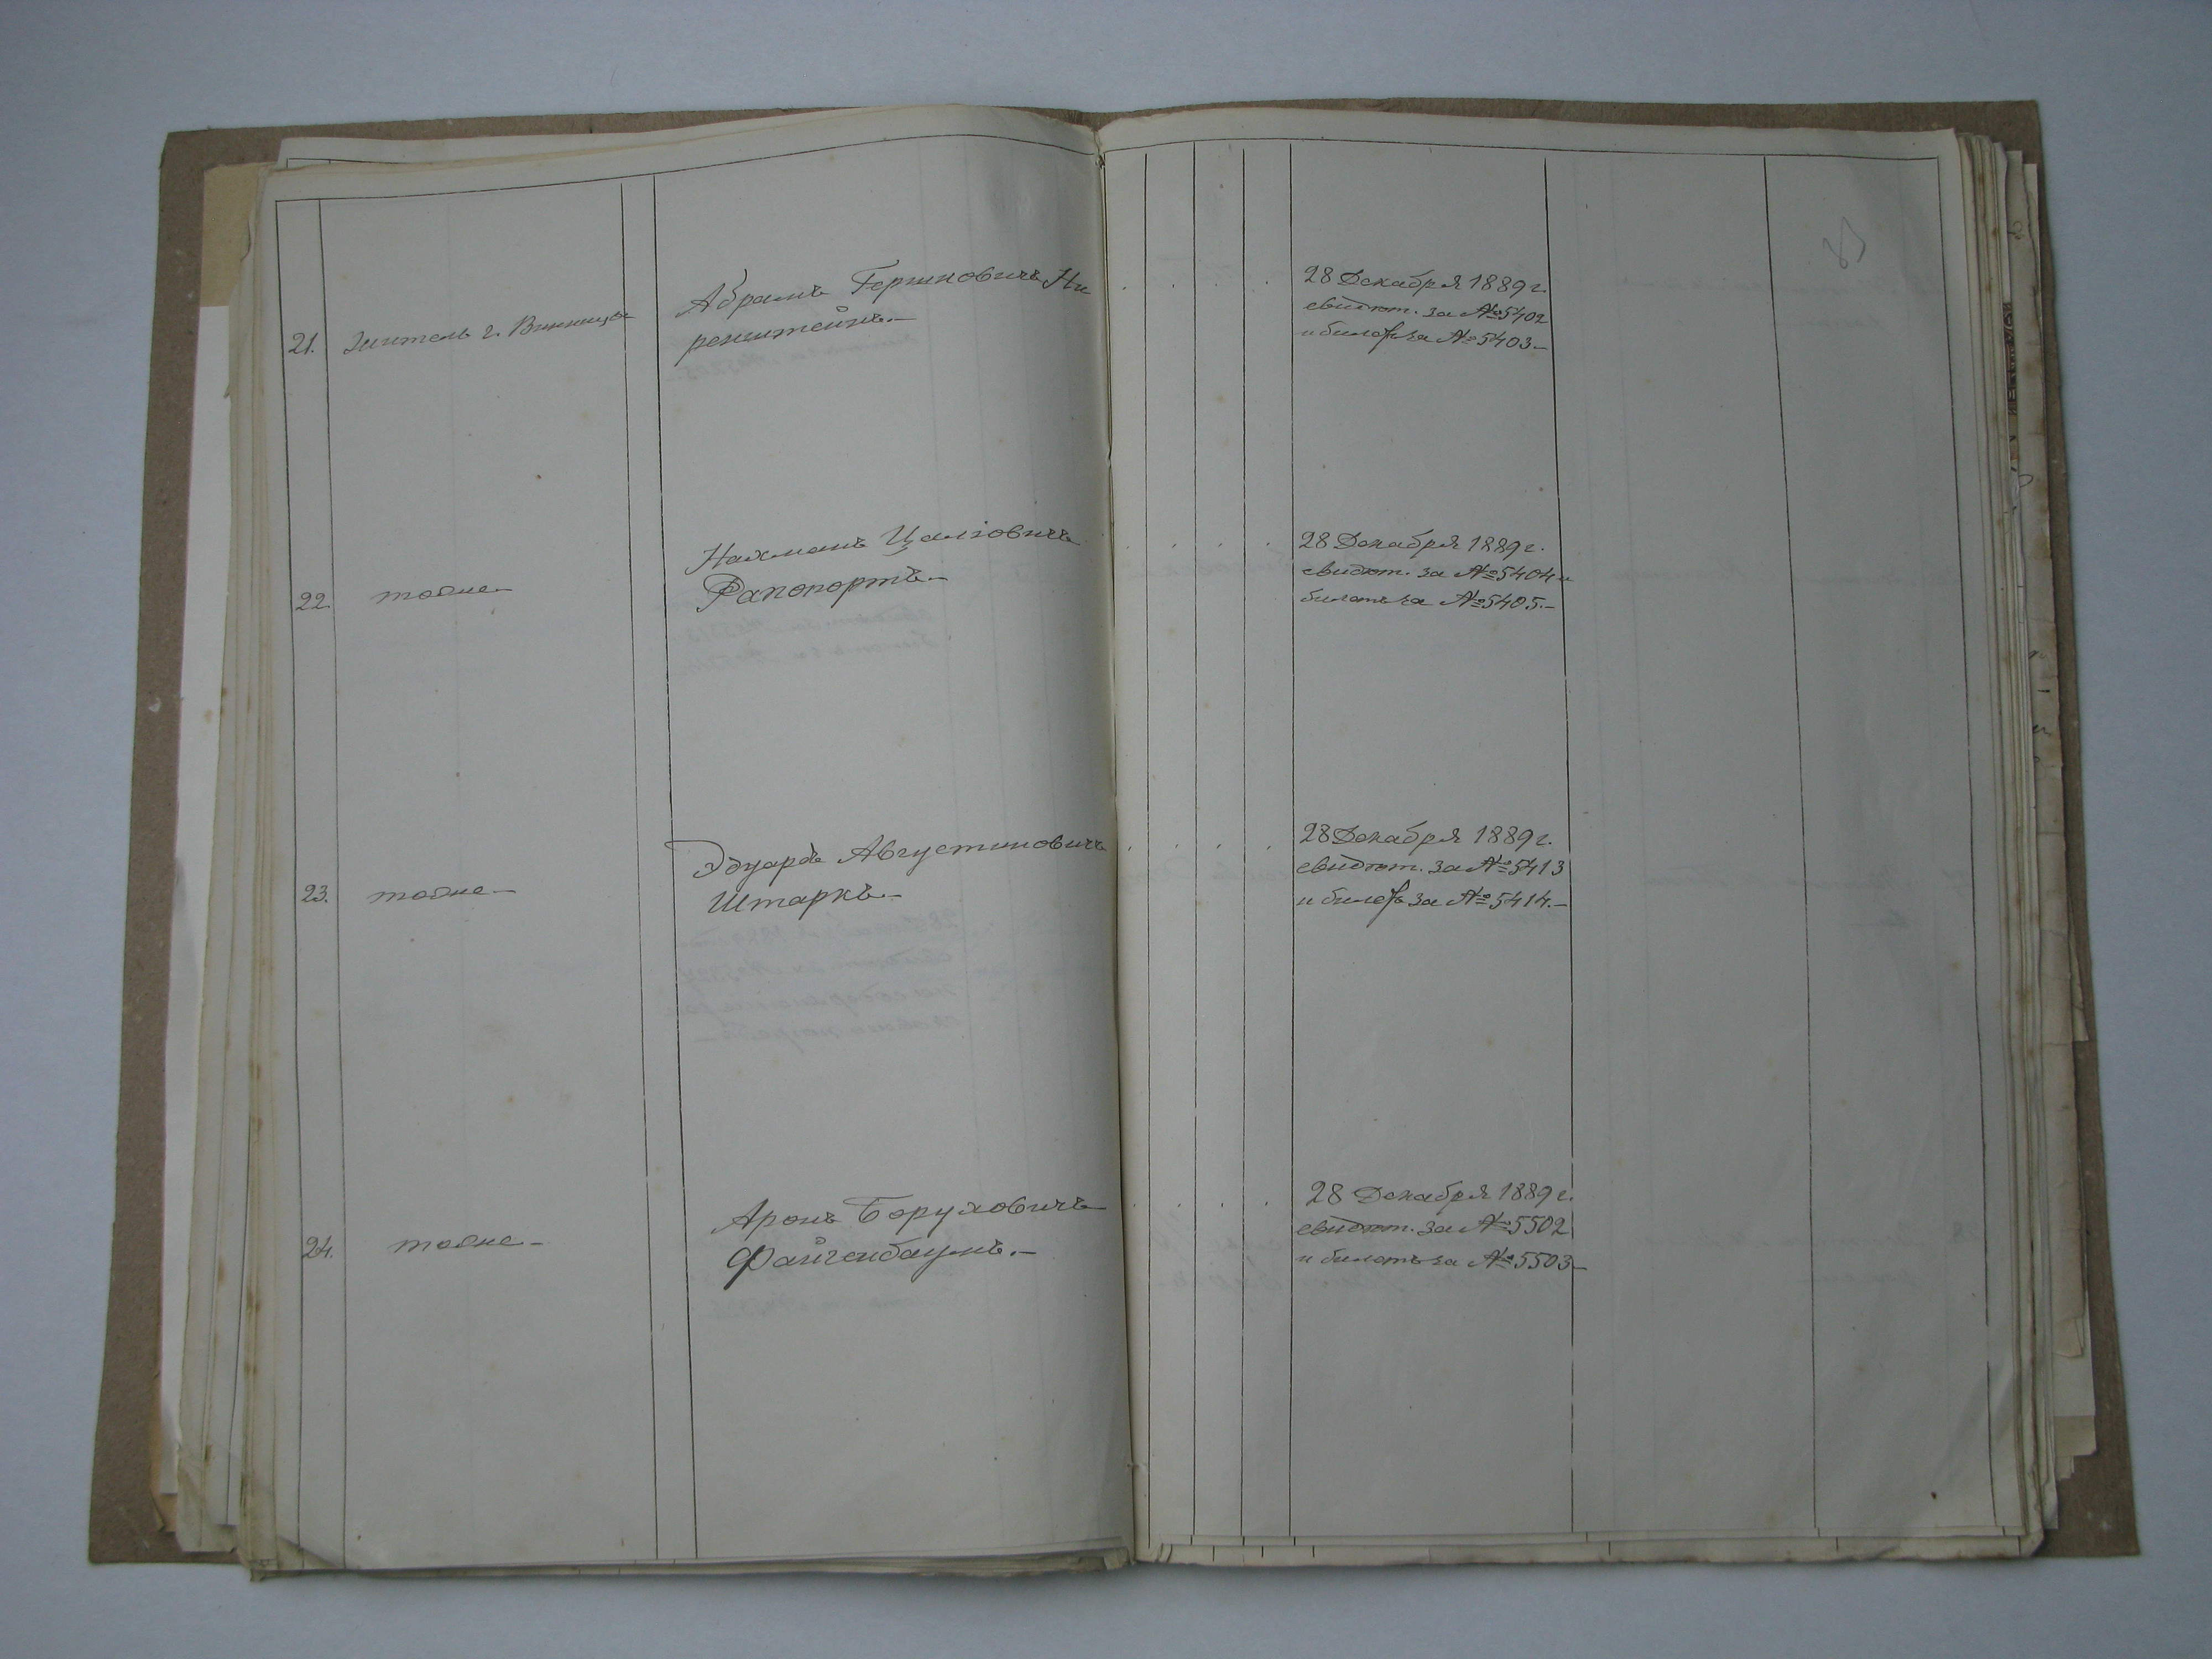 21. Житель г. Винницы
Абрамъ Гершковичъ Ни
ренштейнъ.—
28 Декабря 1889 г.
свидѣт. за № 5402
и билетъ за № 5403.—
22. тоже—
Нахманъ Цалiовичъ
Рапопортъ.—
28 Декабря 1889 г.
свидѣт. за № 5404 и
билетъ за № 5405.—
23. тоже—
Эдуардъ Августиновичъ
Штаркъ.—
28 Декабря 1889 г.
свидѣт. за № 5413
и билетъ за № 5414.—
24. тоже—
Аронъ Боруховичъ
Файгенбаумъ.—
28 Декабря 1889 г.
свидѣт. за № 5502
и билетъ за № 5503—